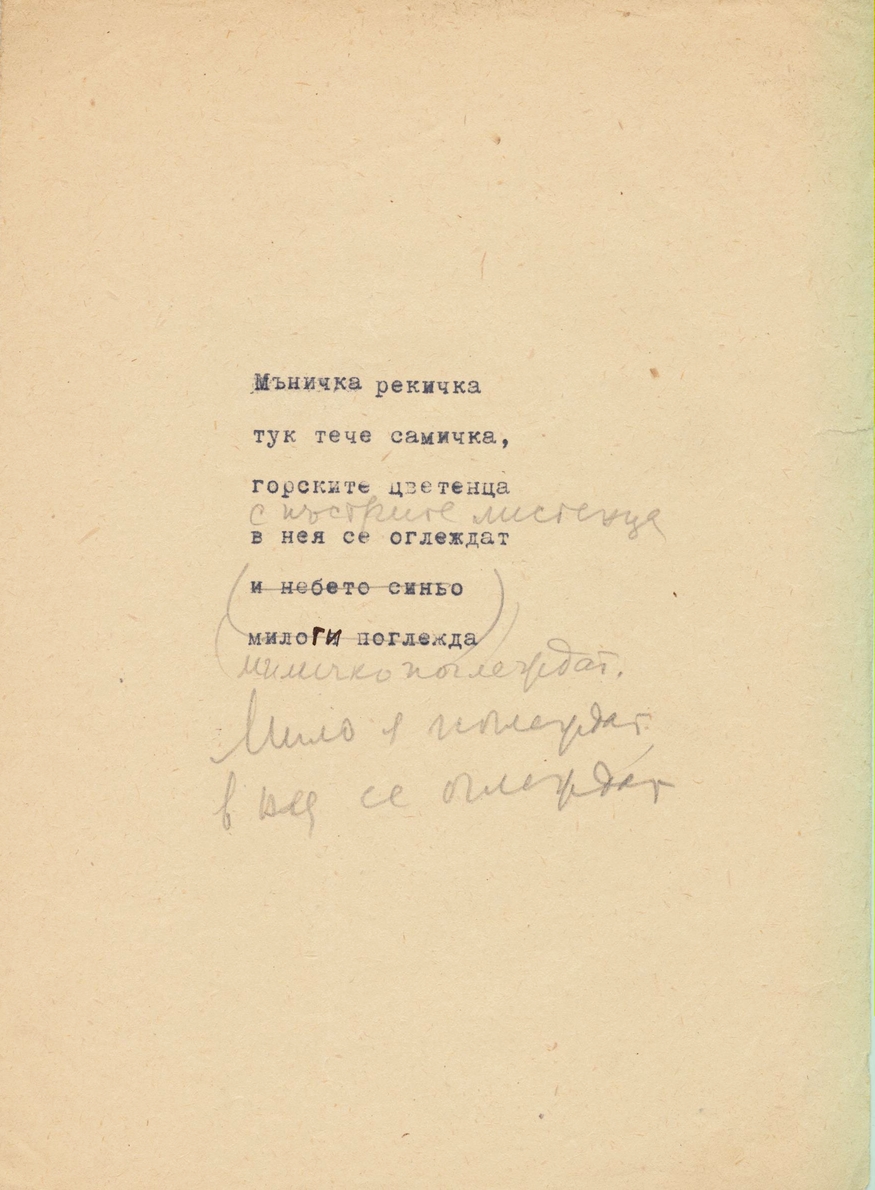 Мъничка рекичка
тук тече самичка,
горските цветенца
с пъстрите листенца
в нея се оглеждат
и небето синьо
мило ги поглежда
миличко поглеждат.
Мило я поглеждат
в нея се оглеждат